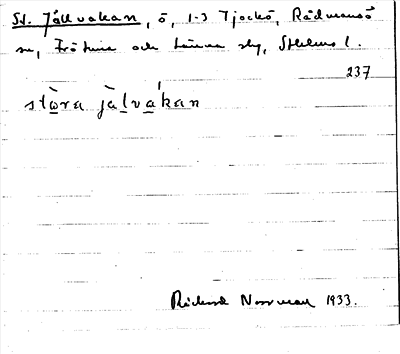 St. Jällvakan, ö, 1-3 Tjockö, Rådmansö
sn, Frötuna och Länna skg, Sthlms l.
237
stωra jàlvákan
Rickard Norrman 1933.